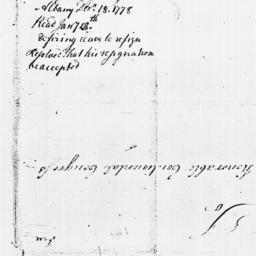 Albany Decr. 18. 1778
Read Jany 13th
desiring leave to resign
Resolved that his resignation
be accepted
Honorable Continental Congress
To